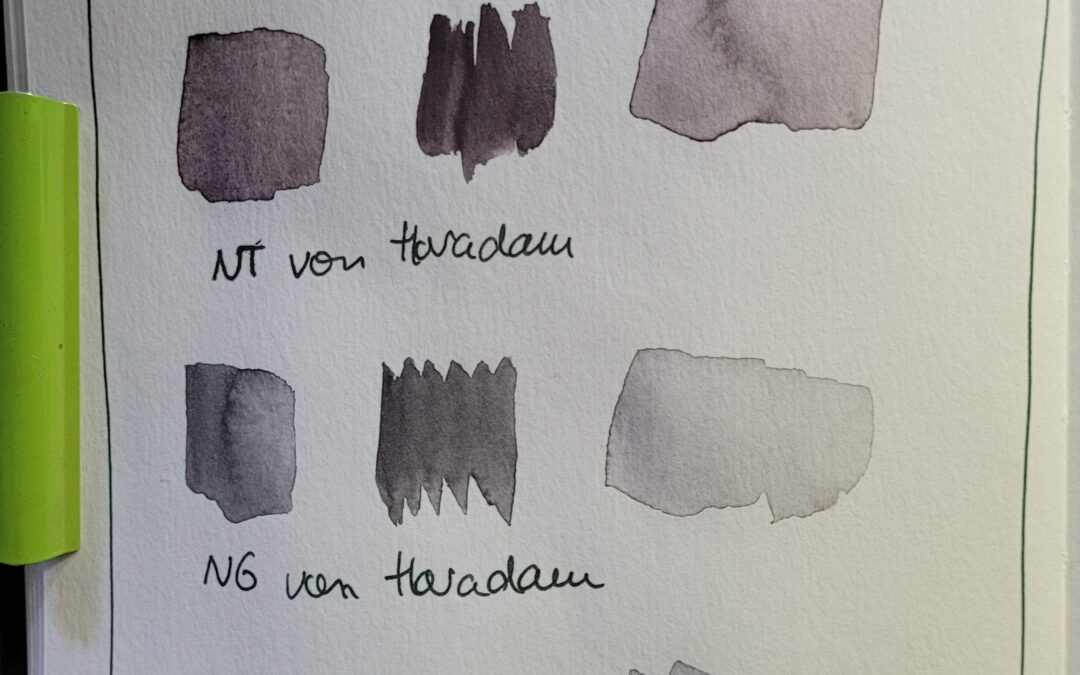 NT von Horadam
NG von Horadam